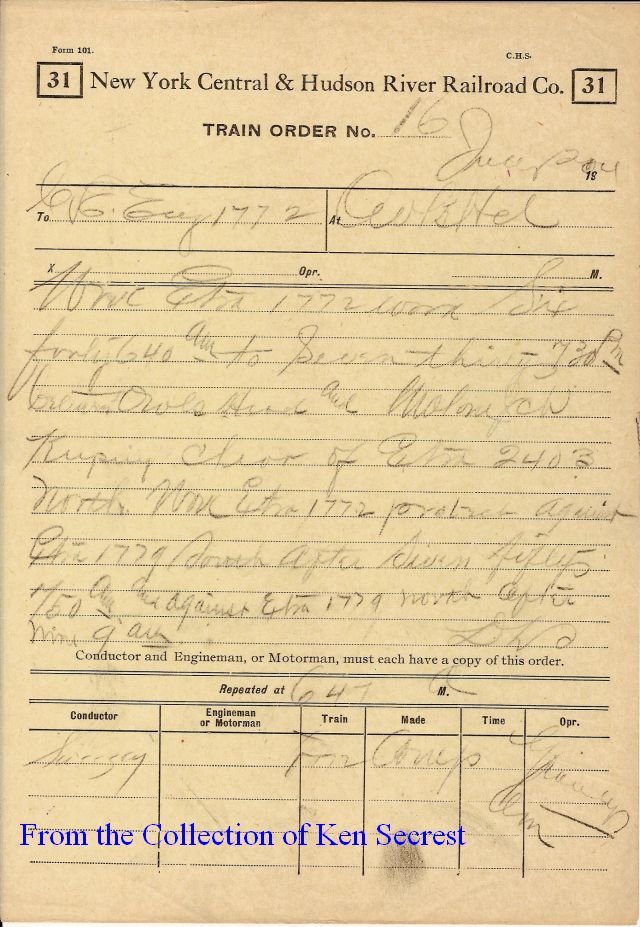 Form 101.
C.H.S.
31 New York Central & Hudson River Railroad Co. 31
TRAIN ORDER No. 16
18
To C & E Eng 1772 At Owls Hd
X Opr. M.
Work Extra 1772 work Six
forty 640 am to Seven thirty 730 Pm
between Owls Head and Malone Jcn
Keeping clear of Extra 2403
North Work Extra 1772 protect against
Extra 1779 South after Seven fifty
750 am and against Extra 1779 north after
nine 9 am
Conductor and Engineman, or Motorman, must each have a copy of this order.
Repeated at 647 A M.
Conductor Engineman or Motorman Train Made Time Opr.
Comp
From the Collection of Ken Secrest